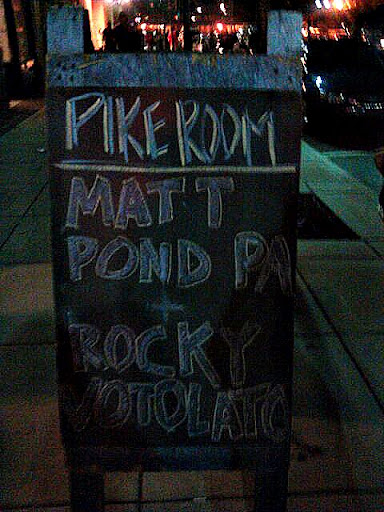 PIKE ROOM
MATT
POND PA
+
ROCKY
VOTOLATO